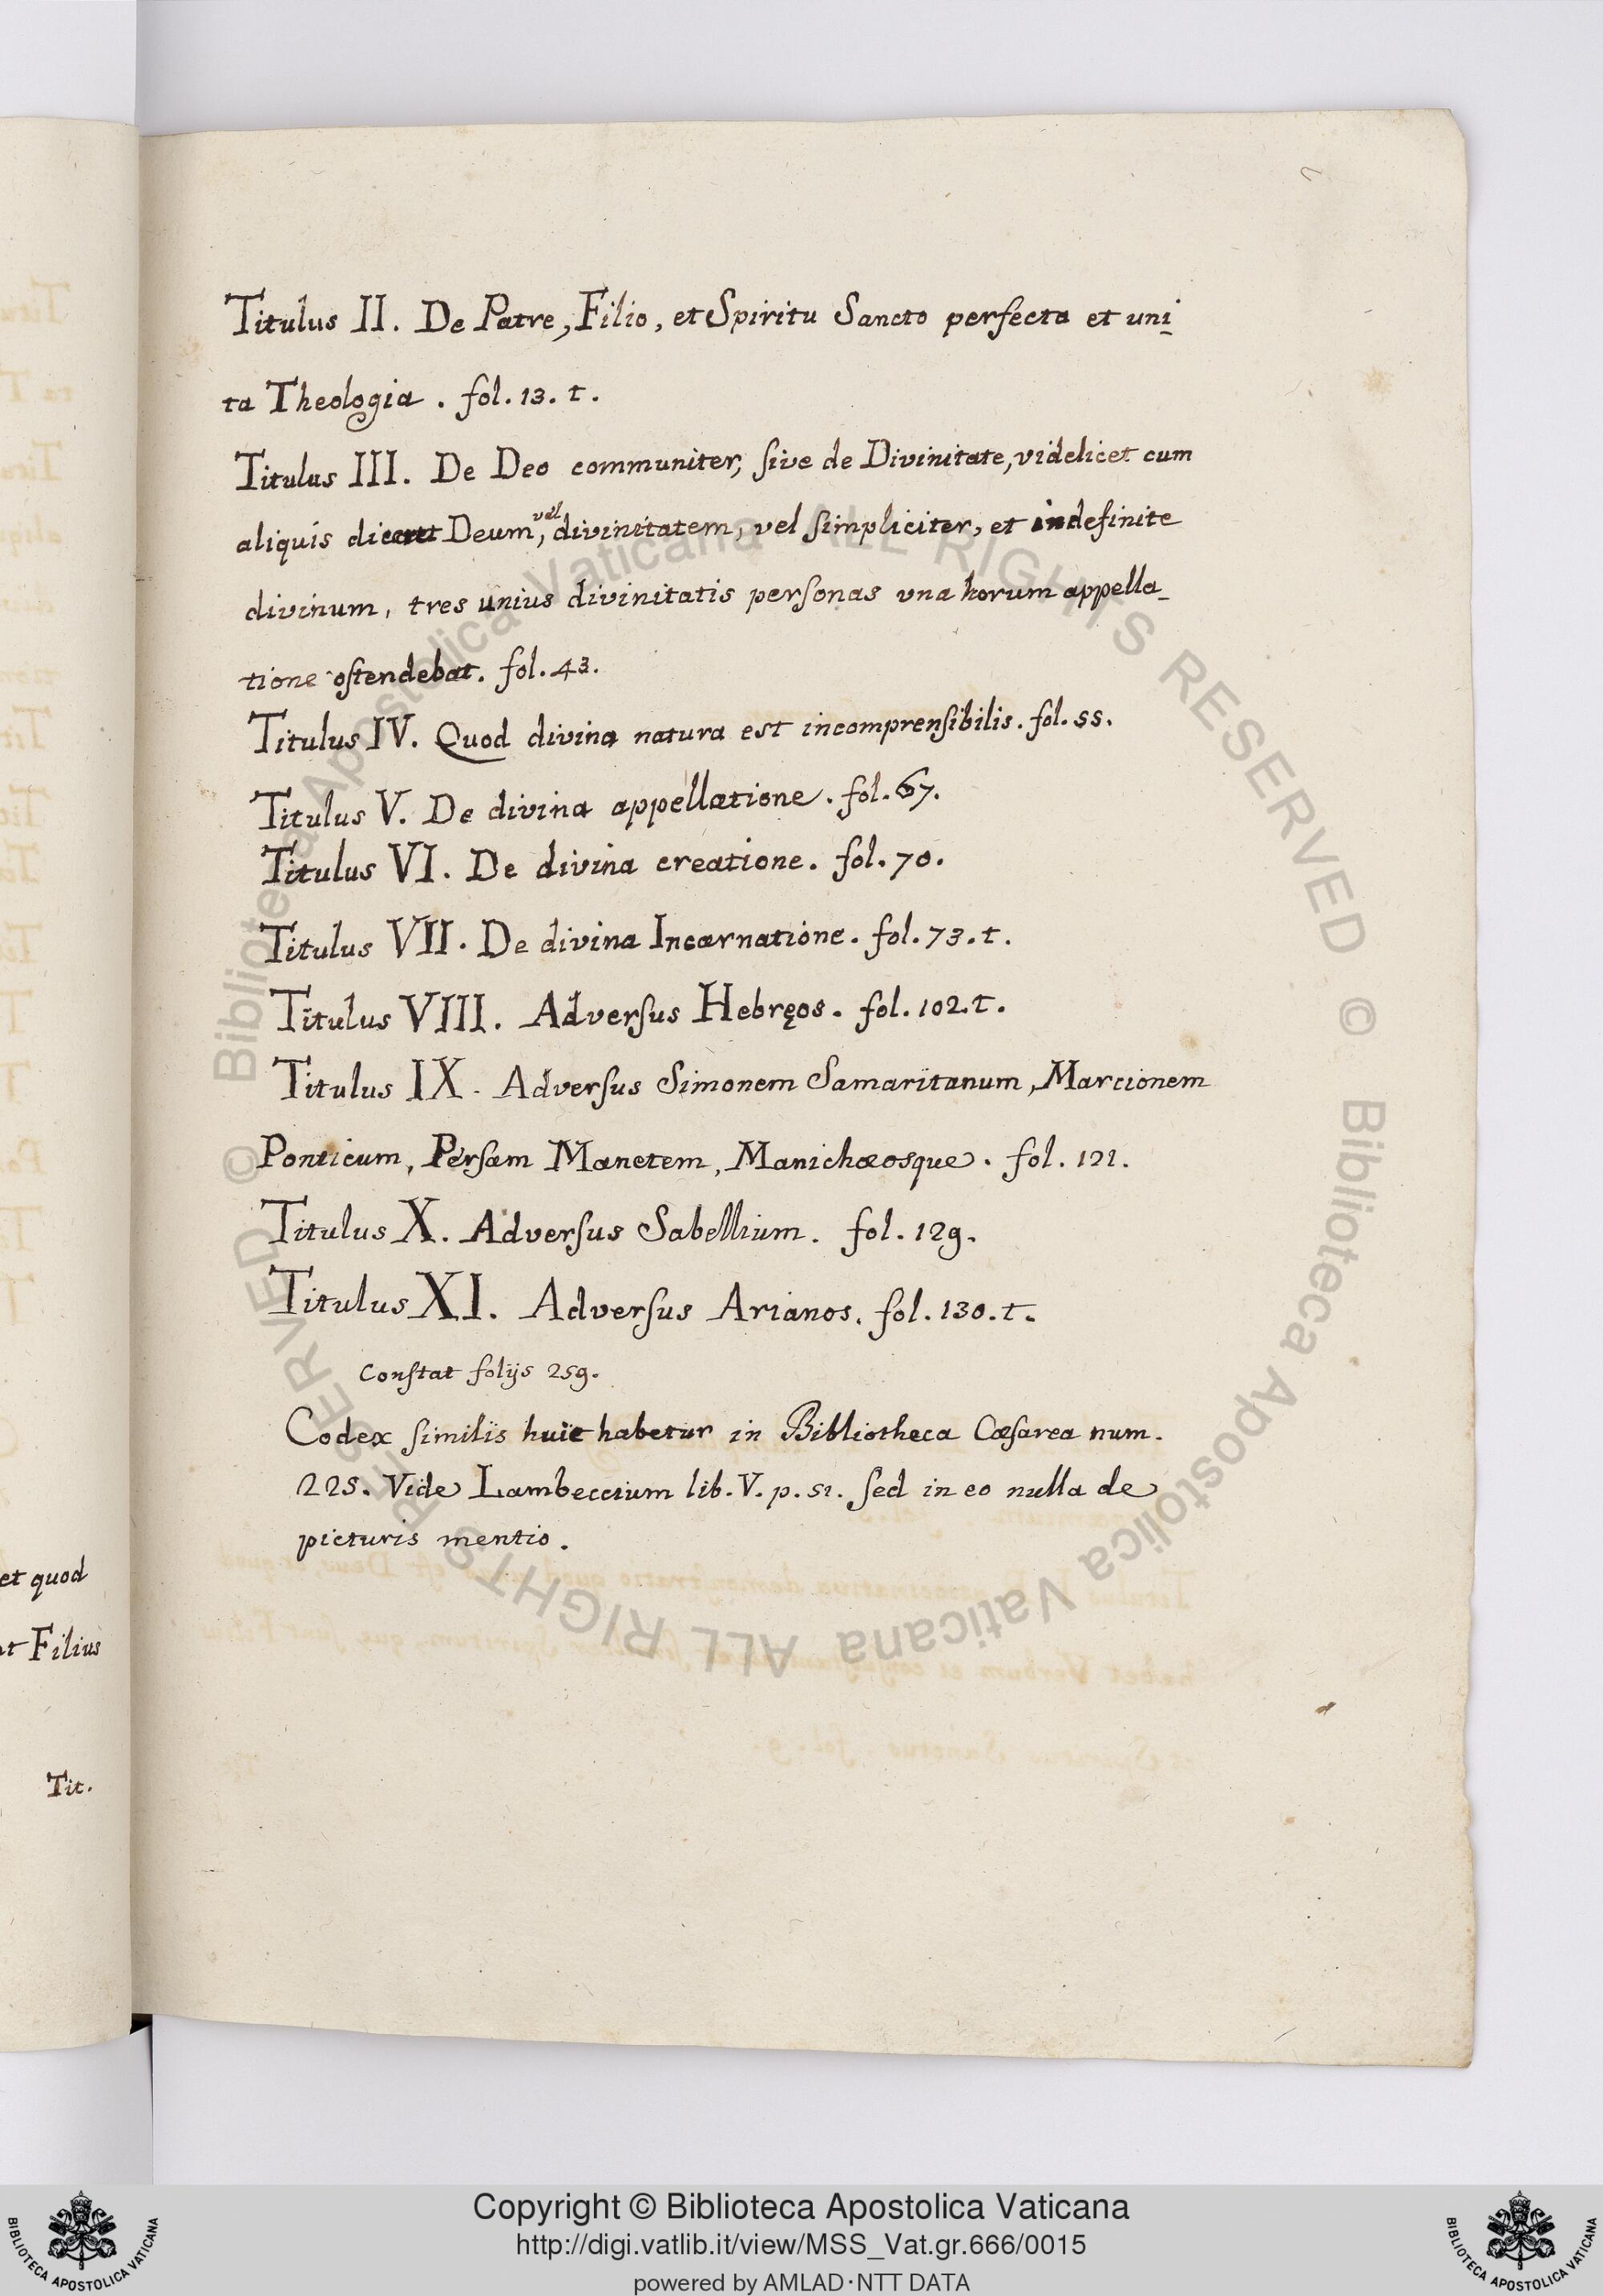 Titulus II. De Patre, Filio, et Spiritu Sancto perfecta et uni
ta Theologia. fol. 13. t.
Titulus III. De Deo communiter, ſive de Divinitate, videlicet cum
aliquis diceret Deum, vel divinitatem, vel ſimpliciter, et indefinite
divinum, tres unius divinitatis perſonas vna horum appella_
tione oſtendebat. fol. 43.
Titulus IV. Quod divina natura est incomprenſibilis. fol. 55.
Titulus V. De divina appellatione. fol. 67.
Titulus VI. De divina creatione. fol. 70.
Titulus VII. De divina Incarnatione. fol. 73. t.
Titulus VIII. Adverſus Hebręos. fol. 102. t.
Titulus IX. Adverſus Simonem Samaritanum, Marcionem
Ponticum, Perſam Manetem, Manichæosque. fol. 121.
Titulus X. Adverſus Sabellium. fol. 129.
Titulus XI. Adverſus Arianos. fol. 130. t.
Conſtat folijs 259.
Codex ſimilis huic habetur in Bibliotheca Cæſarea num.
225. Vide Lambeccium lib. V. p. 51. ſed in eo nulla de
picturis mentio.
et quod
Filius
Tit.
© Biblioteca Apostolica Vaticana ALL RIGHTS RESERVED © Biblioteca Apostolica Vaticana ALL RIGHTS RESERVED
Copyright © Biblioteca Apostolica Vaticana
http://digi.vatlib.it/view/MSS_Vat.gr.666/0015
powered by AMLAD·NTT DATA
BIBLIOTECA APOSTOLICA VATICANA
BIBLIOTECA APOSTOLICA VATICANA